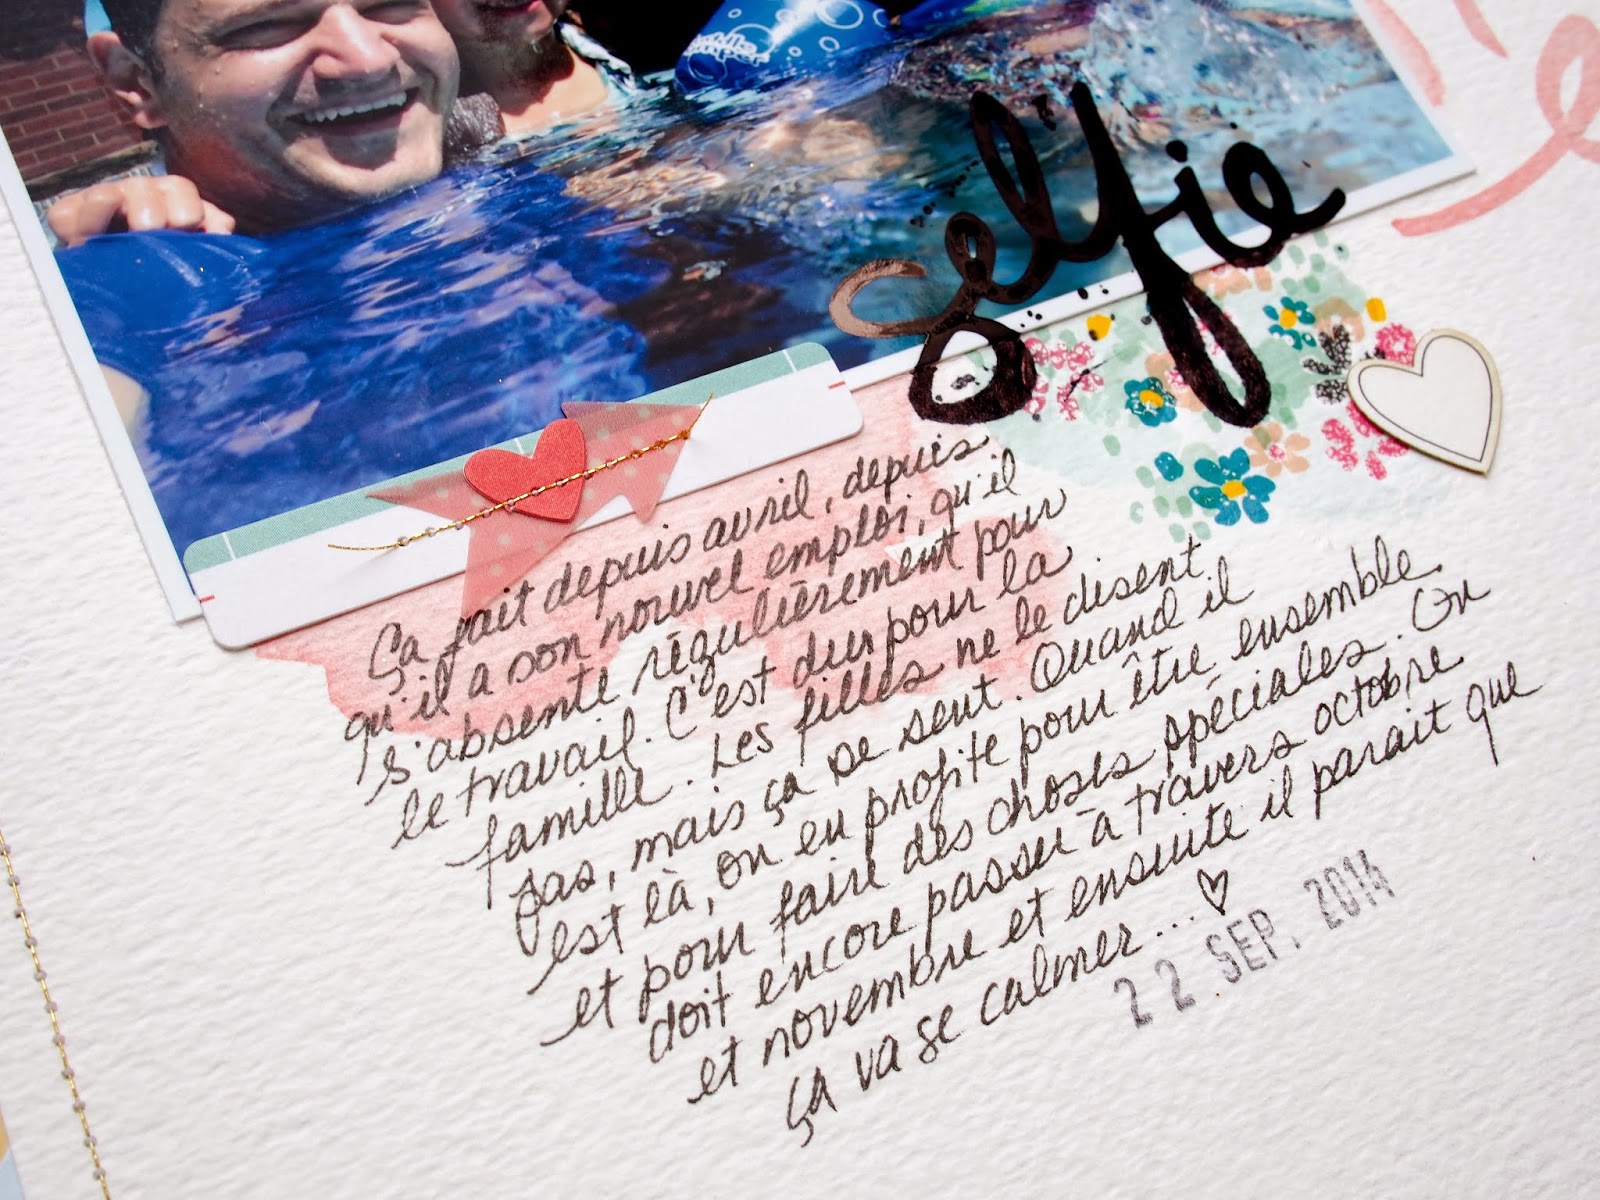 selfie
Ça fait depuis avril, depuis
qu'il a son nouvel emploi, qu'il
s'absente régulièrement pour
le travail. C'est dur pour la
famille. Les filles ne le disent
pas, mais ça se sent. Quand il
est là, on en profite pour être ensemble
et pour faire des choses spéciales. On
doit encore passer à travers octobre
et novembre et ensuite il parait que
ça va se calmer...♡
22 SEP. 2014